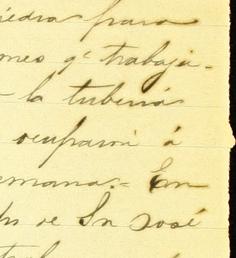 piedra para
ones qᵉ trabaja-
- la tubería
ocuparon á
emana.- En
de Sn José